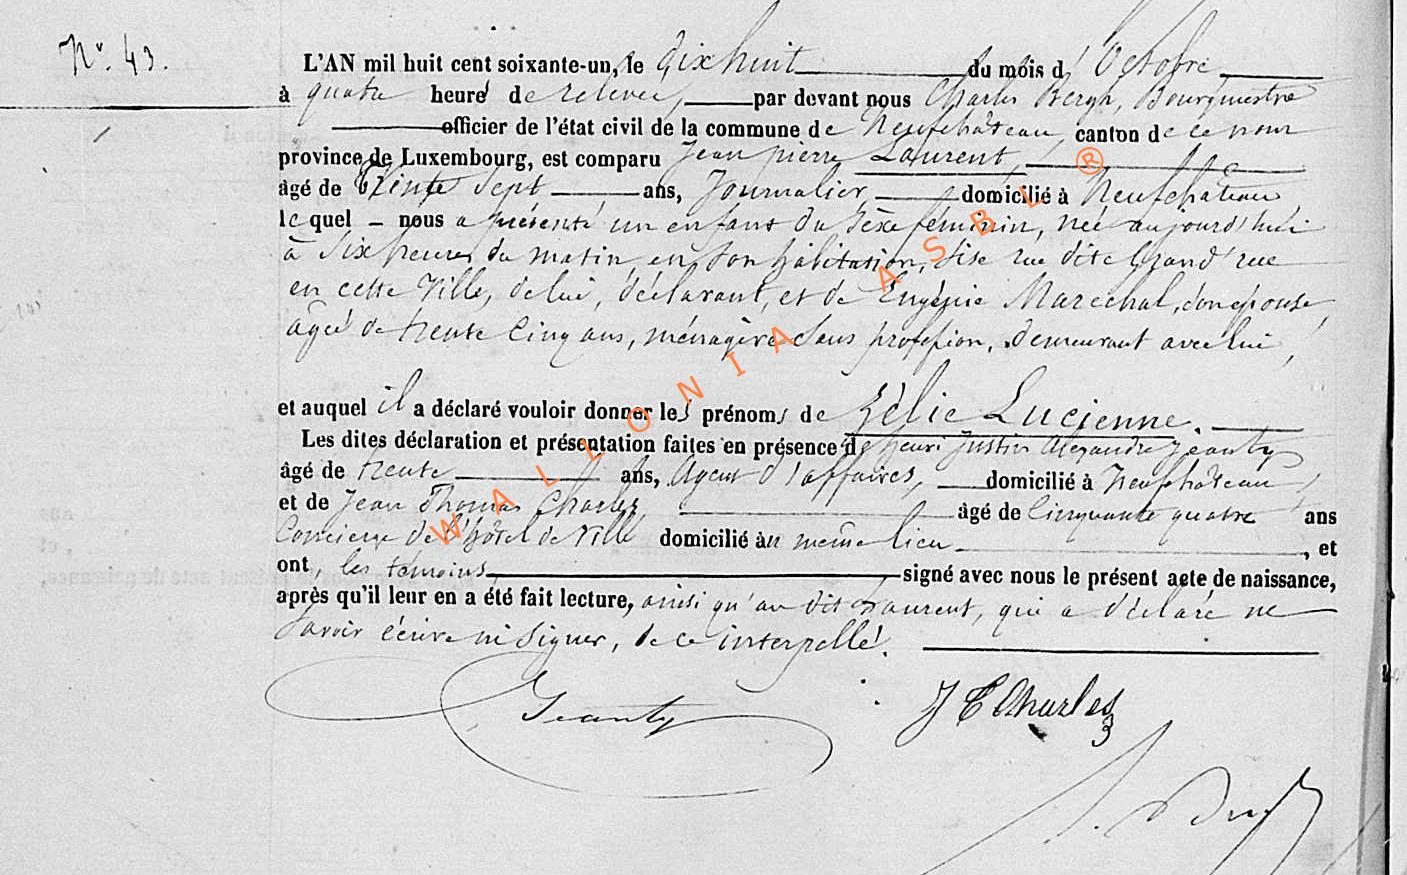 N° 43.
L'AN mil huit cent soixante-un, le dix huit du mois d'Octobre
à quatre heures de relevée, par devant nous Charles Bergh, Bourgmestre
officier de l'état civil de la commune de Neufchâteau canton de ce nom
province de Luxembourg, est comparu Jean pierre Laurent,
âgé de Trente Sept ans, Journalier, domicilié à Neufchâteau
le quel nous a présenté un enfant du Sèxe féminin, née aujourd'hui
à Six heures du matin en son habitation, Sise rue dite Grand'rue
en cette Ville, de lui, déclarant, et de Eugénie Maréchal, son épouse,
âgée de trente Cinq ans, ménagère Sans profession, Demeurant avec lui,
et auquel il a déclaré vouloir donner les prénoms de Zélie Lucienne.
Les dites déclaration et présentation faites en présence de henri Justin Alexandre Jeanty
âgé de trente ans, Agent d'affaires, domicilié à Neufchâteau,
et de Jean Thomas Charles, âgé de Cinquante quatre ans
Concierge de l'hôtel de Ville domicilié au même lieu, et
ont, les témoins, signé avec nous le présent acte de naissance,
après qu'il leur en a été fait lecture, ainsi qu'au dit Laurent, qui a déclaré ne
Savoir écrire ni Signer, de ce interpellé.
Jeanty J T Charles
WALLONIA ASBL ®